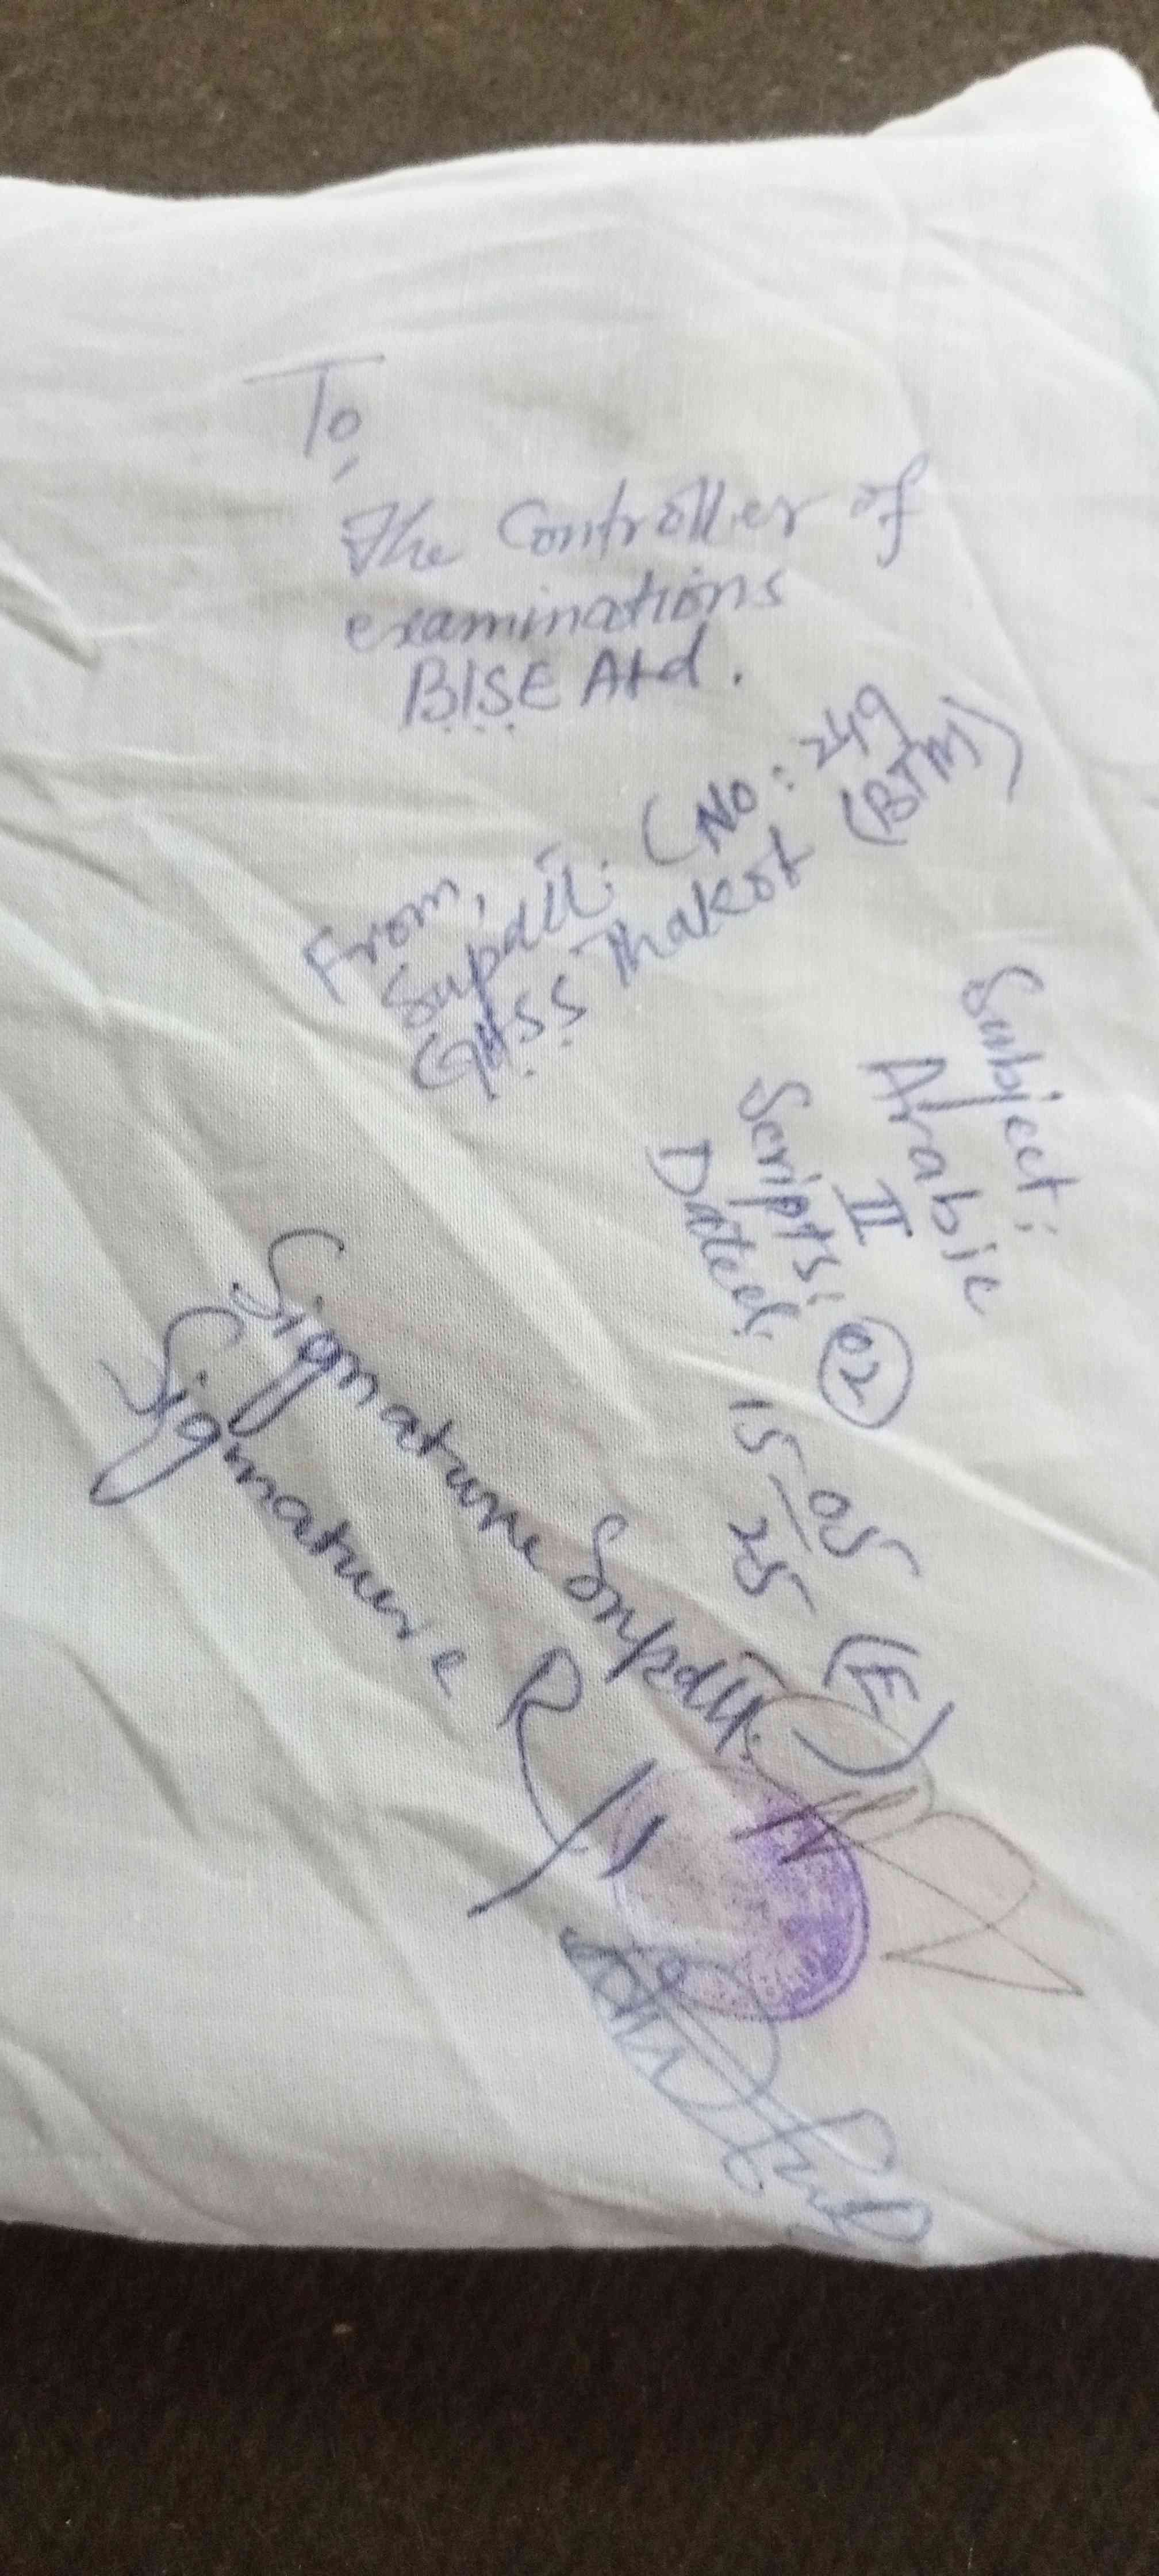 To,
The Controller of
examinations
BISE Atd.
From,
Supdtt: (No: 249
GHSS Thakot (BTM)
Subject:
Arabic
II
Scripts: 02
Dated: 15-05
25 (E)
Signature Supdtt:
Signature R/I